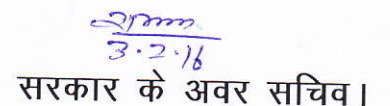 3.2.16
सरकार के अवर सचिव।